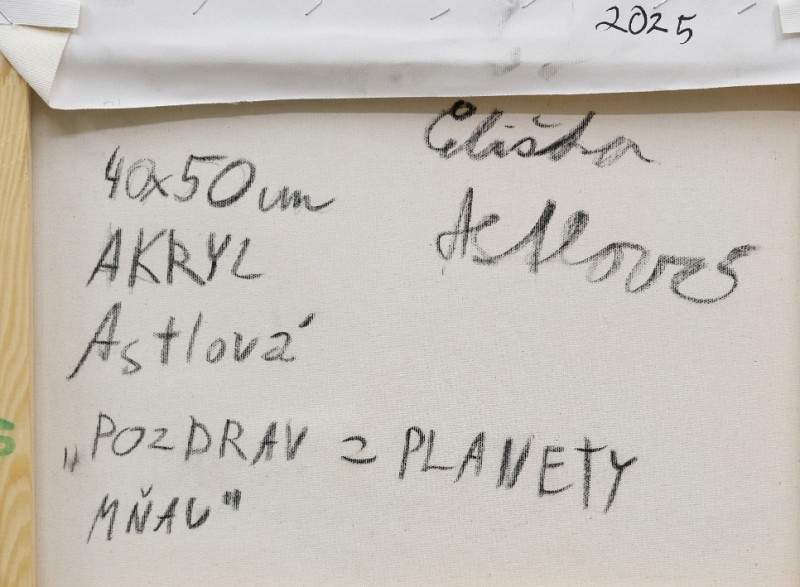 2025
Eliška
Astlová
40x50 cm
AKRYL
Astlová
„POZDRAV Z PLANETY
MŇAU"